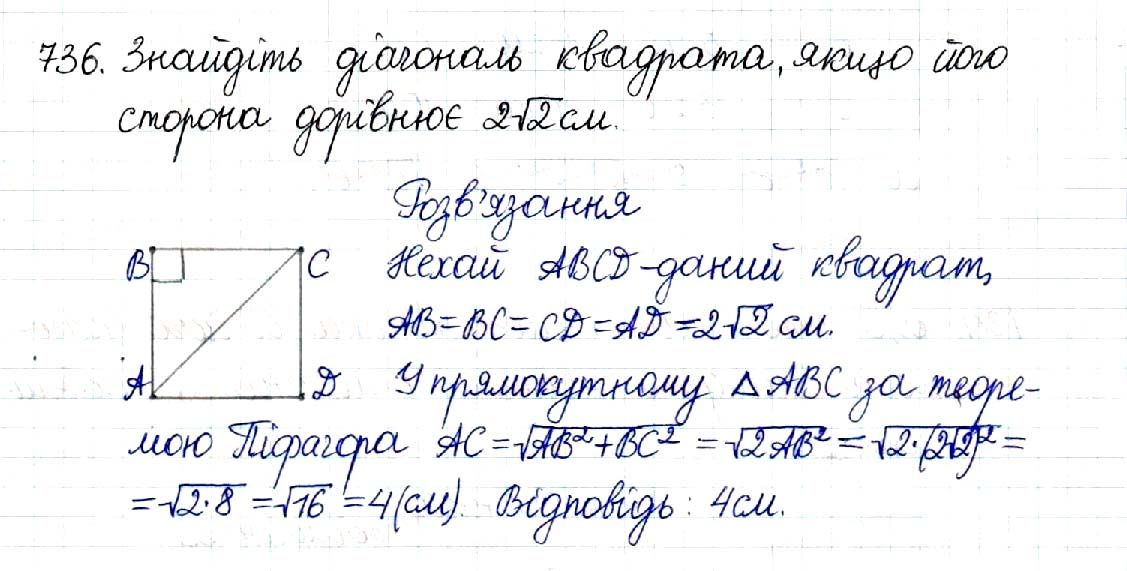 736. Знайдіть діагональ квадрата, якщо його
сторона дорівнює 2√2 см.
Розв'язання
B
C
Нехай ABCD - даний квадрат,
AB = BC = CD = AD = 2√2 см.
A
D
У прямокутному △ABC за теоре-
мою Піфагора AC = √AB² + BC² = √2AB² = √2·(2√2)² =
= √2·8 = √16 = 4 (см). Відповідь: 4 см.